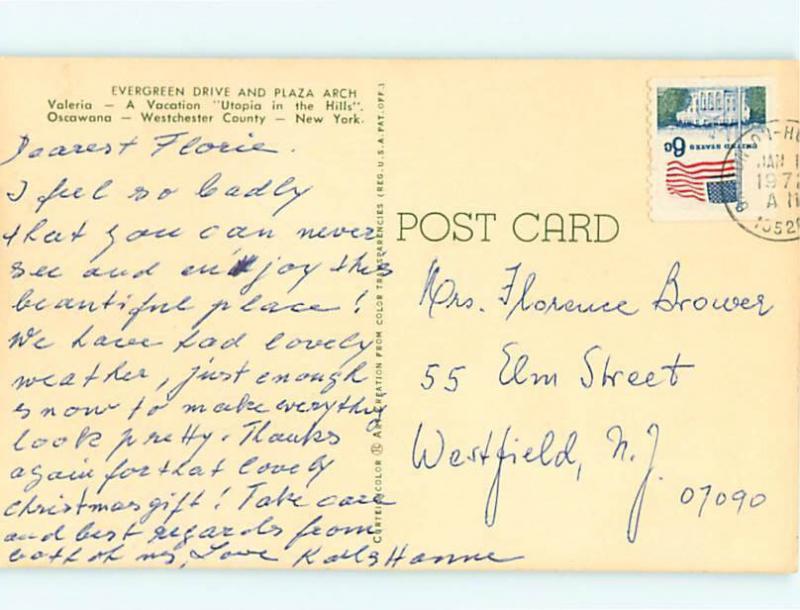 EVERGREEN DRIVE AND PLAZA ARCH
Valeria — A Vacation "Utopia in the Hills".
Oscawana — Westchester County — New York.
Dearest Florie.
I feel so badly
that you can never
see and enjoy this
beautiful place!
We have had lovely
weather, just enough
snow to make everything
look pretty. Thanks
again for that lovely
christmas gift! Take care
and best regards from
both of us, Love Karl & Hanne
CURTEICHCOLOR ART-CREATION FROM COLOR TRANSPARENCIES (REG. U.S.A. PAT. OFF.)
POST CARD
UNITED STATES 6c
JAN
197
A 11
Mrs. Florence Brower
55 Elm Street
Westfield, N.J.
07090